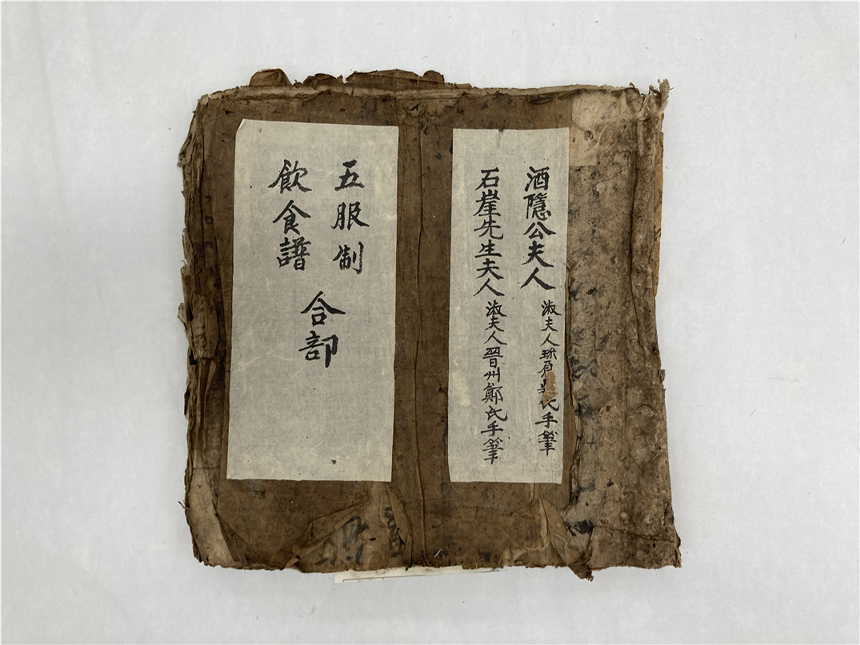 酒隱公夫人 淑夫人珎原吳氏手筆
石崖先生夫人 淑夫人晉州鄭氏手筆
五服制
飲食譜
合部